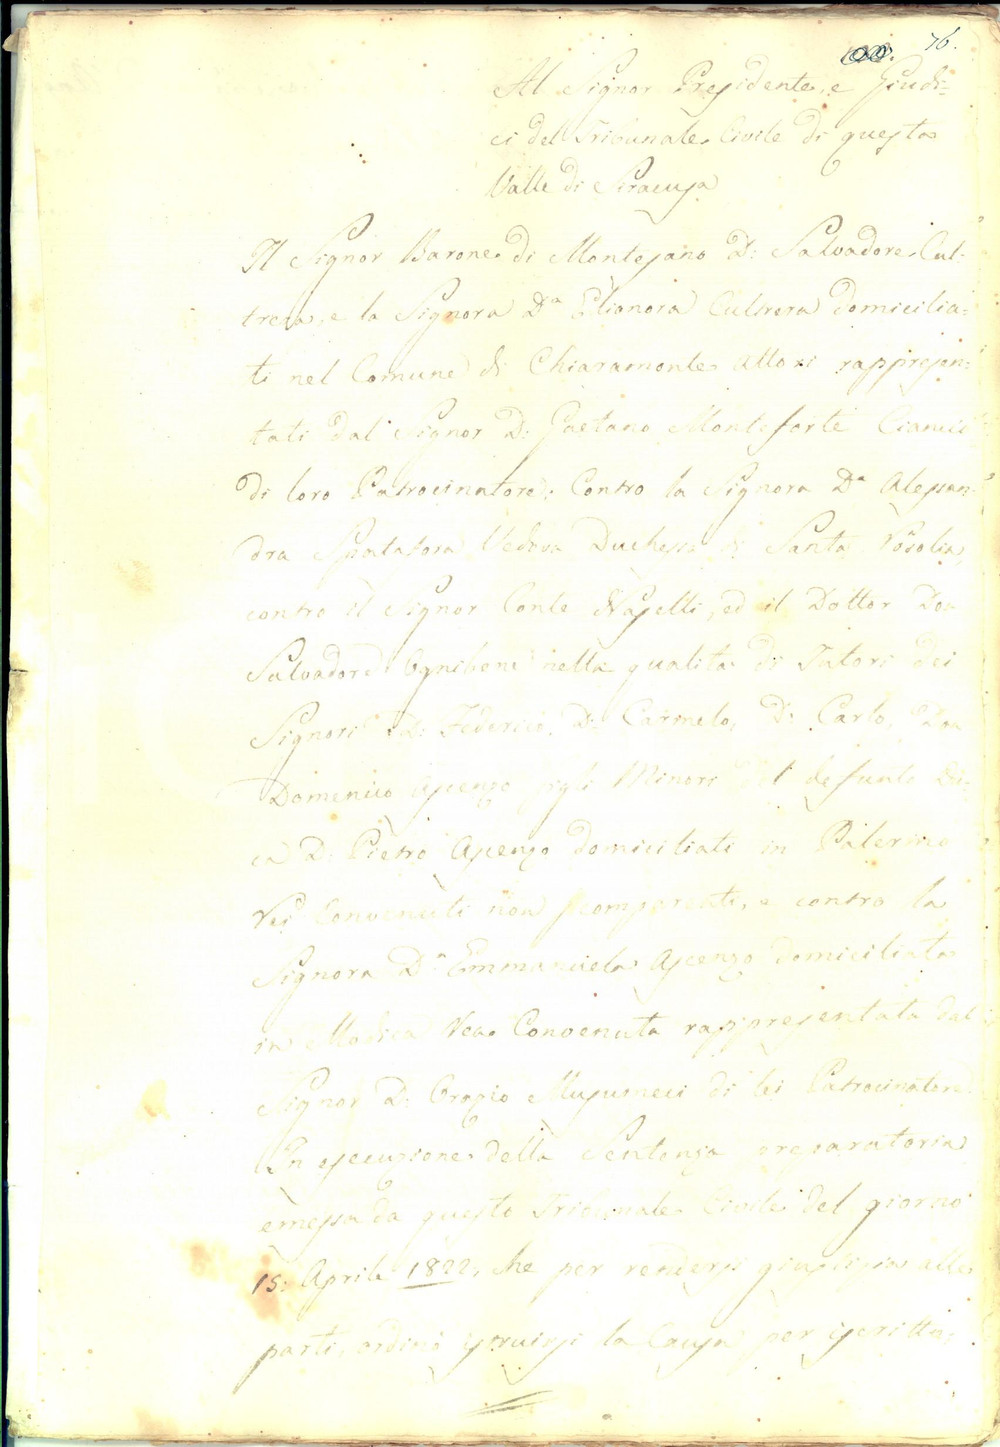 76.
Al Signor Presidente, e Giudi=
ci del Tribunale Civile di questa
Valle di Siracusa
Il Signor Barone di Montesano D: Salvadore Cul=
trera, e la Signora D.a Elionora Cultrera domicilia=
ti nel Comune di Chiaramonte attori rappresen=
tati dal Signor D: Gaetano Monteforte
di loro Patrocinatore: Contro la Signora D.a Alessan=
dra Spatafora Vedova Duchessa di Santa Rosolia,
contro il Signor Conte Naselli, ed il Dottor Don
Salvadore Ognibene nella qualità di Tutori dei
Signori D: Federico, D: Carmelo, D: Carlo, e Don
Domenico Ascenzo figli Minori del defunto Du=
ca D: Pietro Ascenzo domiciliati in Palermo
Rei Convenuti non comparenti, e contro la
Signora D.a Emmanuela Ascenzo domiciliata
in Modica Rea Convenuta rappresentata dal
Signor D: Orazio Musumeci di lei Patrocinatore.
In esecuzione della Sentenza preparatoria
emessa da questo Tribunale Civile del giorno
15: Aprile 1822, che per rendersi giustizia alle
parti, ordinò istruirsi la Causa per iscritto,